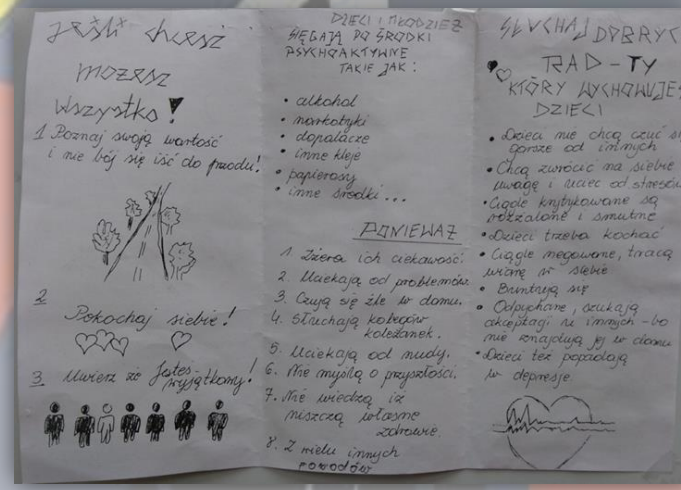 Jeśli chcesz
możesz
wszystko!
1 Poznaj swoją wartość
i nie bój się iść do przodu!
2
Pokochaj siebie!
3 Uwierz że Jesteś
wyjątkowy!
DZIECI I MŁODZIEŻ
SIĘGAJĄ PO ŚRODKI
PSYCHOAKTYWNE
TAKIE JAK:
• alkohol
• narkotyki
• dopalacze
• inne kleje
• papierosy
• inne środki...
PONIEWAŻ
1. Zżera ich ciekawość.
2. Uciekają od problemów.
3. Czują się źle w domu.
4. Słuchają kolegów
koleżanek.
5. Uciekają od nudy.
6. Nie myślą o przyszłości.
7. Nie wiedzą iż
niszczą własne
zdrowie.
8. Z wielu innych
powodów
SŁUCHAJ DOBRYC
RAD - TY
KTÓRY WYCHOWUJES
DZIECI
• Dzieci nie chcą czuć si
gorsze od innych
• Chcą zwrócić na siebie
uwagę i uciec od stresów
• Ciągle krytykowane są
rozżalone i smutne
• Dzieci trzeba kochać
• Ciągle negowane, tracą
wiarę w siebie
• Buntują się
• Odpychane, szukają
akceptacji u innych - bo
nie znajdują jej w domu
• Dzieci też popadają
w depresje